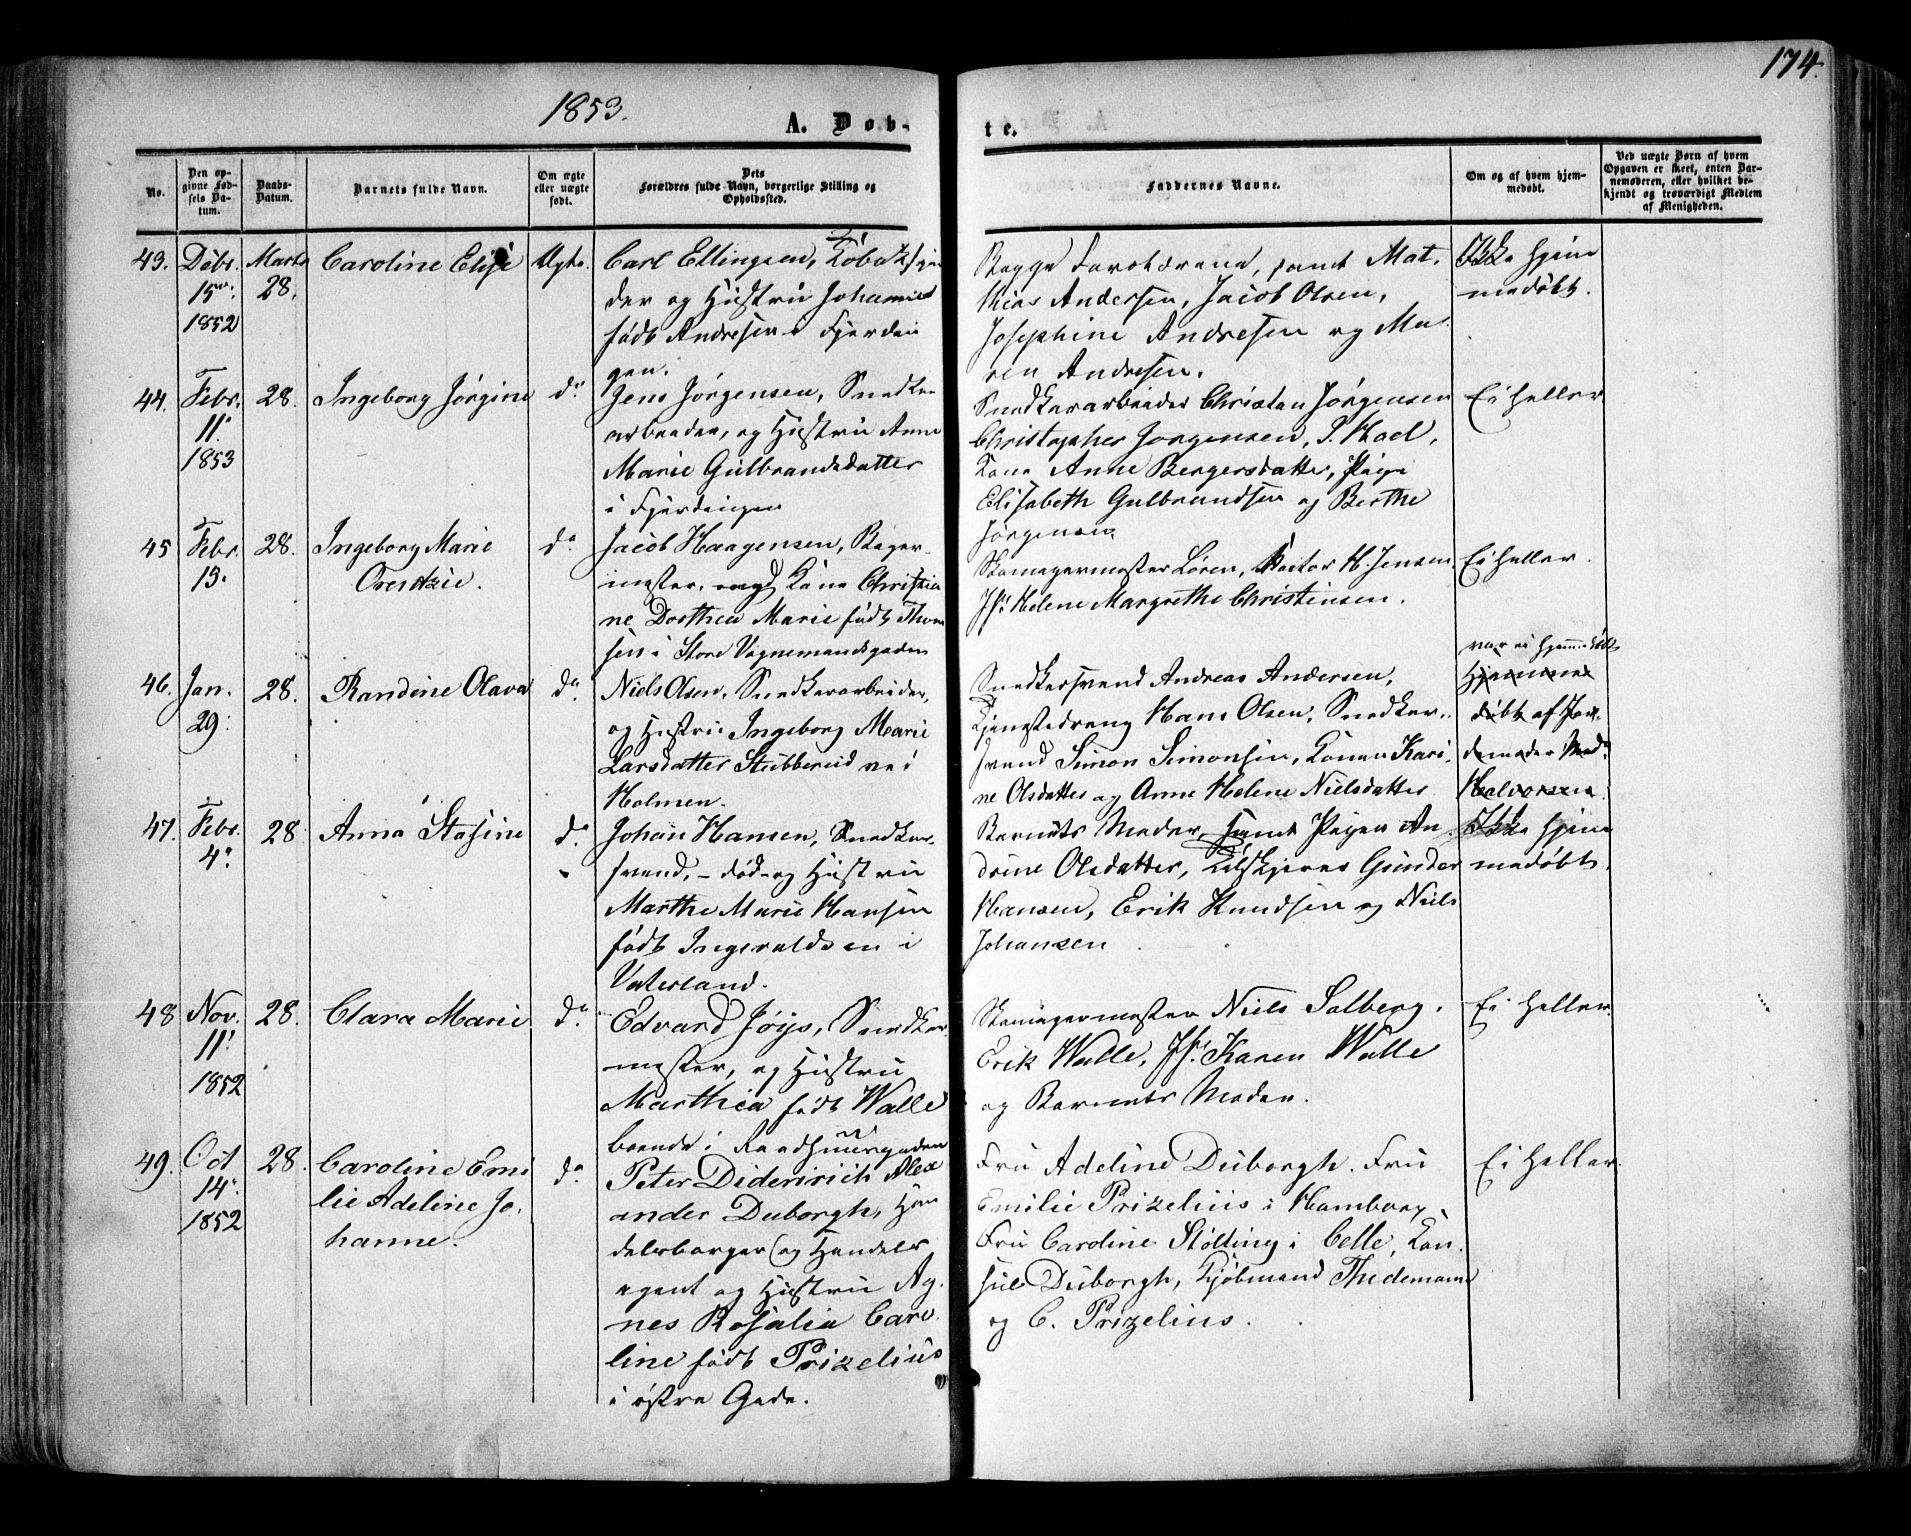 174.
1853.
A. Døb-
te.
No.
Den op-
givne Fød-
sels Da-
tum.
Daabs-
Datum.
Barnets fulde Navn.
Om ægte
eller uægte
født.
Dets
Forældres fulde Navn, borgerlige Stilling og
Opholdssted.
Faddernes Navne.
Om og af hvem hjem-
medøbt.
Ved uægte Børn af hvem
Opgaven er skeet, enten Bar-
nemoderen, eller hvilket be-
kjendt og troværdigt Medlem
af Menigheden.
43.
Debr.
15de
1852
Marts
28.
Caroline Elise
Ægte.
Carl Ellingsen,
der og Hustru Johanne
født Andresen i Fjerdin
gen.
Begge Forældrene, samt Mat-
hias Andersen, Jacob Olsen,
Josephine Andresen og Ma-
ren Andresen.
Ikke hjem
medøbt.
44.
Febr.
11'
1853
28.
Ingeborg Jørgine
do
Jens Jørgensen, Snedker
arbeider, og Hustru Anne
Marie Gulbrandsdatter
i Fjerdingen
Snedkerarbeider Christen Jørgensen
Christopher Jørgensen,
Kone Anne Bergersdatter, Pige
Elisabeth Gulbrandsen og Berthe
Jørgensen
Ei heller
45
Febr.
13.
28.
Ingeborg Marie
do
Jacob Haagensen, Bager-
mester, og Kone Christia
ne Dorthea Marie født Thom
sen i Store Vognmandsgaden
Skomagermester Løren, H. Jensen
Jfr Helene Margrethe Christensen.
Ei heller.
46.
Jan.
29.
28.
Randine Olava
do
Niels Olsen, Snedkerarbeider,
og Hustru Ingeborg Marie
Larsdatter Stubberud ve i
Holmen.
Snedkersvend Andreas Andersen,
Tjenestedreng Hans Olsen, Snedker-
svend Simon Simonsen, Konen Kari-
ne Olsdatter og Anne Helene Nielsdatter
var ei hjemmedøbt
Hjemme
døbt af Jor-
demoder Mad.
Halvorsen.
47.
Febr.
4.
28.
Anna Stasine
do
Johan Hansen, Snedker-
svend, - død - og Hustru
Marthe Marie Hansen
født Ingevaldsen i
Vaterland.
Barnets Moder, samt Pigen An-
drine Olsdatter, Gunder
Hansen, Erik Knudsen og Niels
Johansen
Ikke hjem
medøbt.
48
Nov.
11'
1852
28.
Clara Marie
do
Edvard Jøys, Snedker
mester, og Hustru
Marthea født Walle
boende i Raadhuusgaden
Skomagermester Niels Solberg.
Erik Walle, Jfr. Karen Walle
og Barnets Moder.
Ei heller.
49.
Oct
14
1852
28.
Caroline Emi
lie Adeline Jo-
hanne.
do
Peter Dideririch Alex
ander Duborgh, Han
delsborger og Handels
agent og Hustru Ag-
nes Rosalia Caro-
line født Prizelius
i østre Gade.
Fru Adeline Duborgh. Fru
Emilie Prizelius i Hamborg,
Fru Caroline Stølting i Celle, Kon-
sul Duborgh, Kjøbmand Thedemann
og C. Prizelius.
Ei heller.